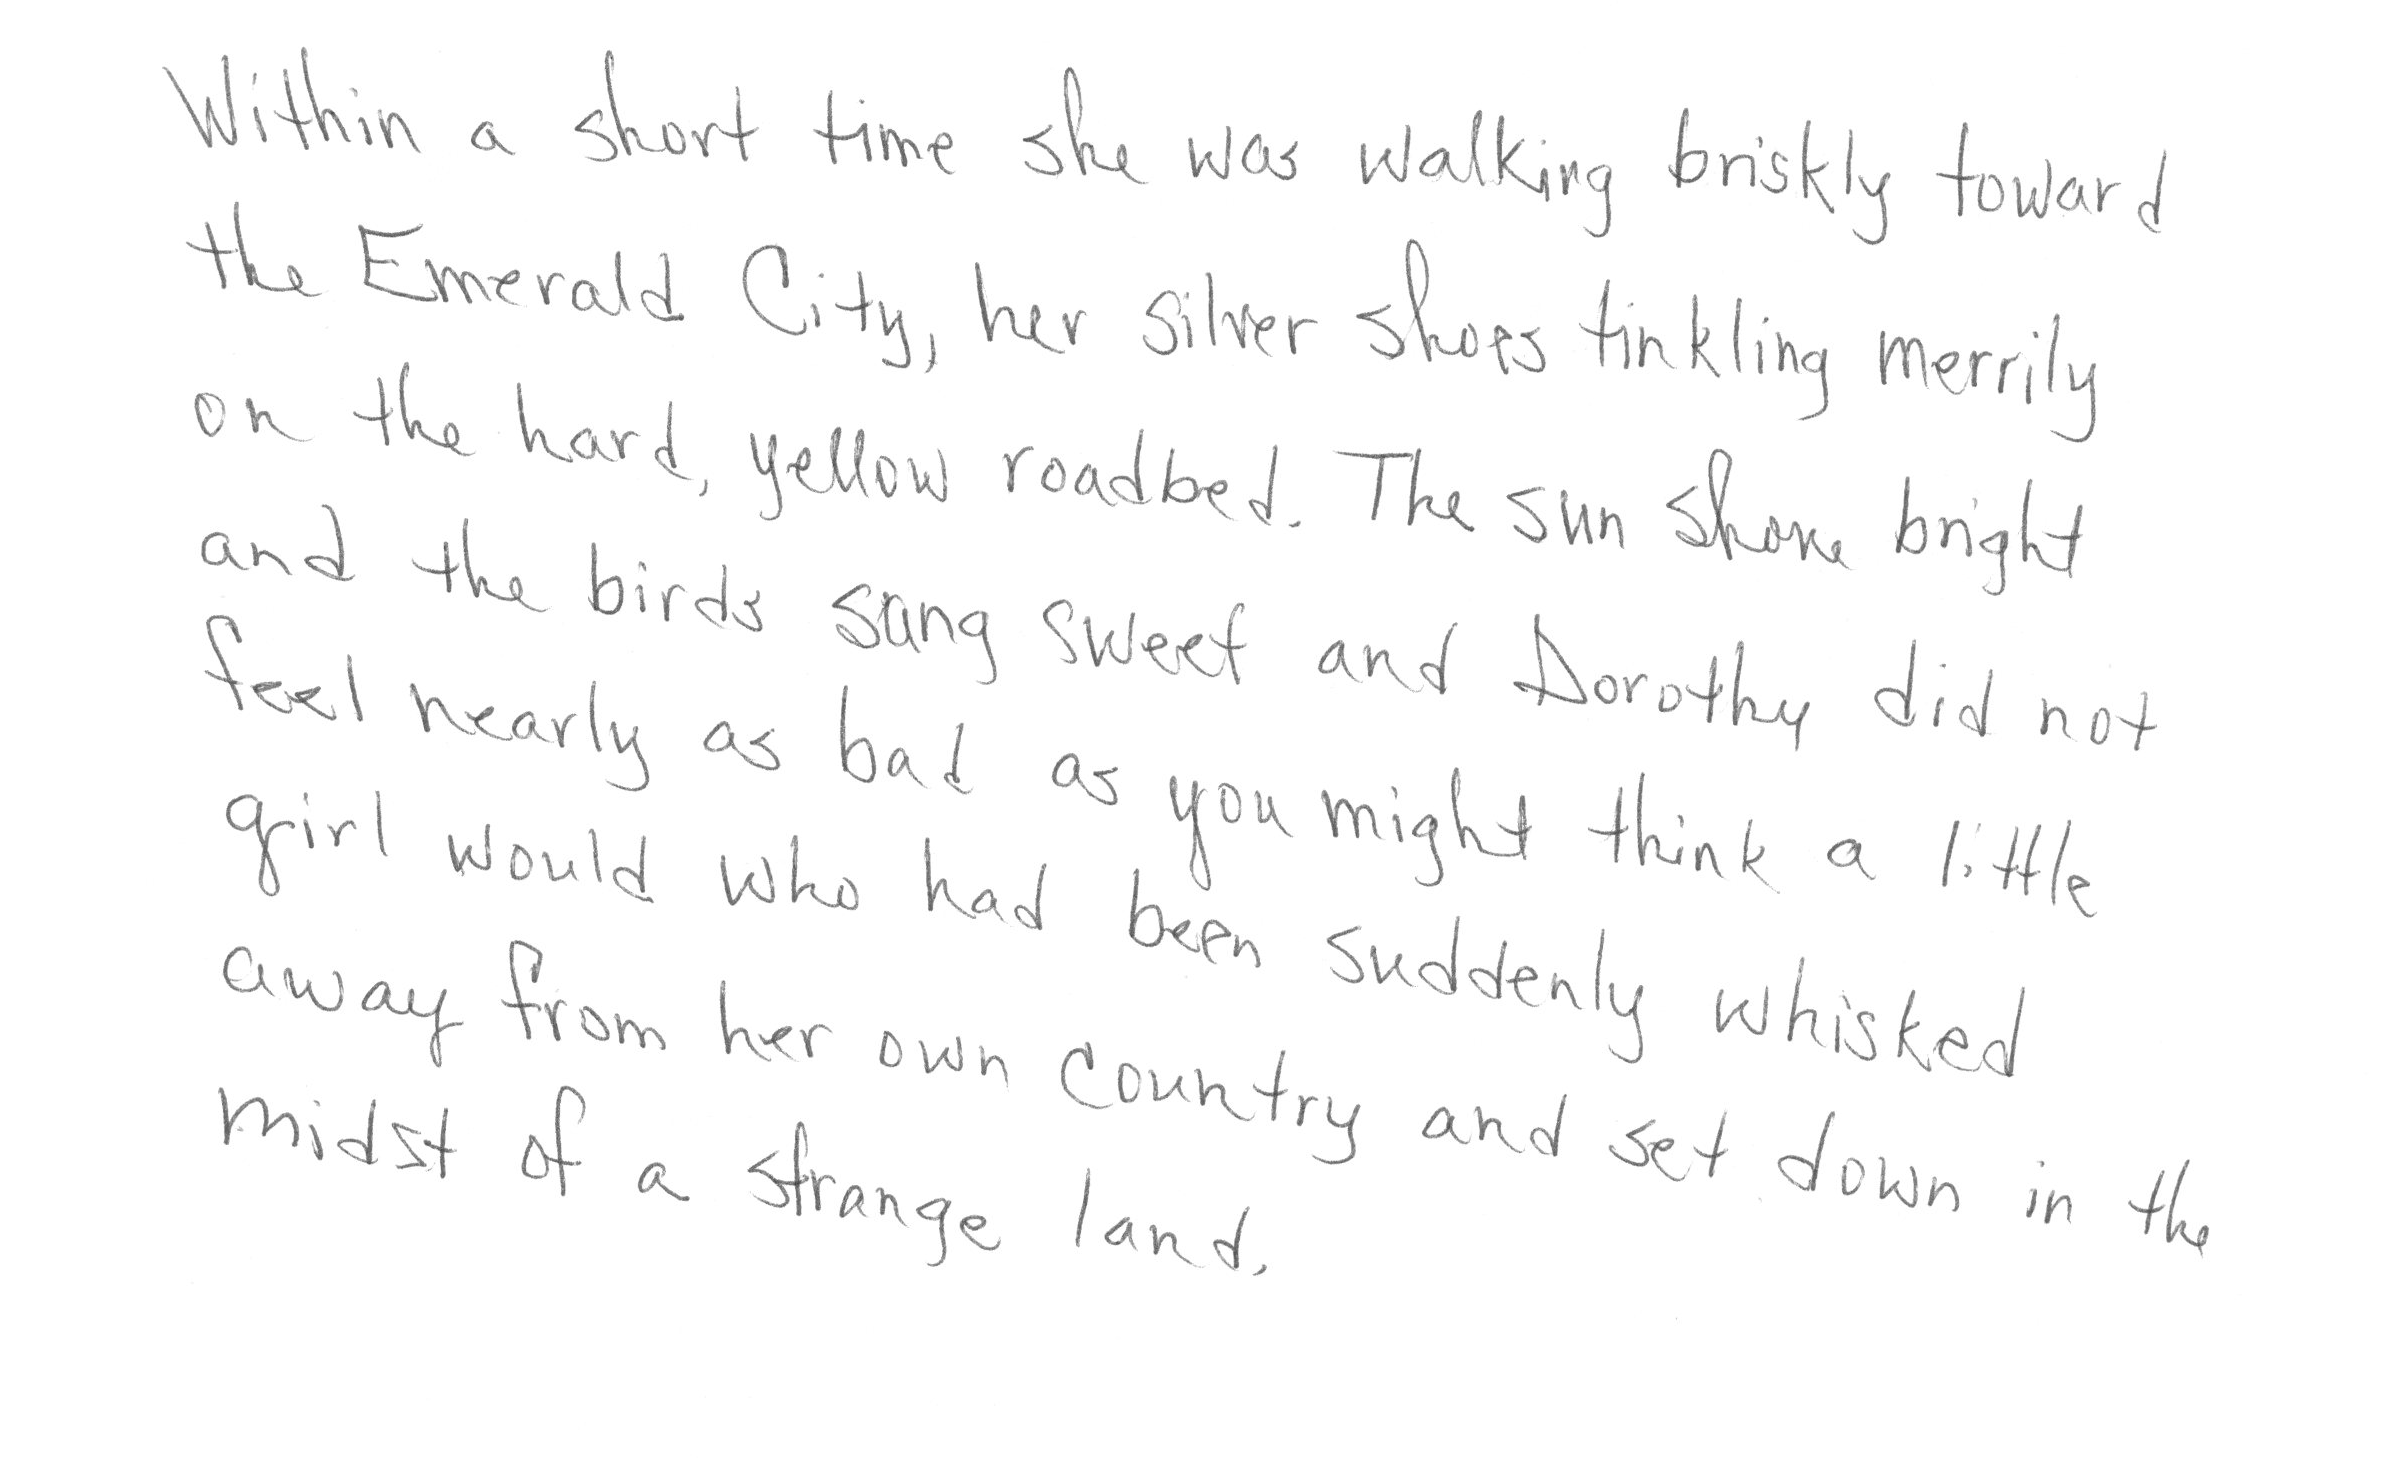 Within a short time she was walking briskly toward
the Emerald City, her silver shoes tinkling merrily
on the hard, yellow roadbed. The sun shone bright
and the birds sang sweet and Dorothy did not
feel nearly as bad as you might think a little
girl would who had been suddenly whisked
away from her own country and set down in the
midst of a strange land.